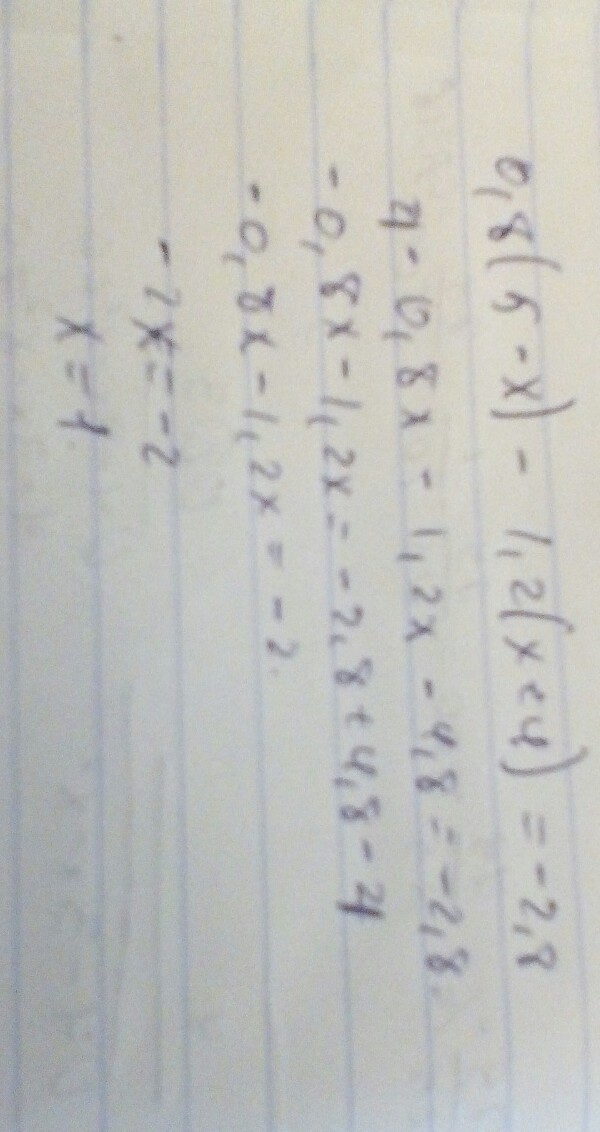 0,8(5-x) - 1,2(x+4) = -2,8
4-0,8x-1,2x-4,8=-2,8.
-0,8x-1,2x=-2,8+4,8-4
-0,8x-1,2x=-2.
-2x=-2
x=1.